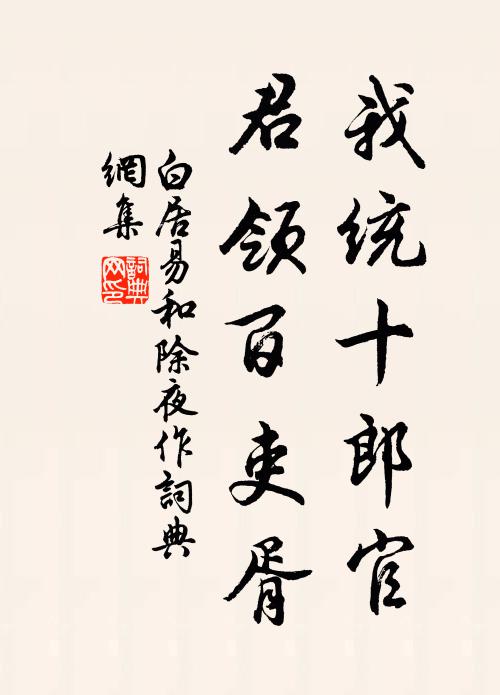 我统十郎官
君领百吏胥
白居易和除夜作詞典
網集
詞典
网印